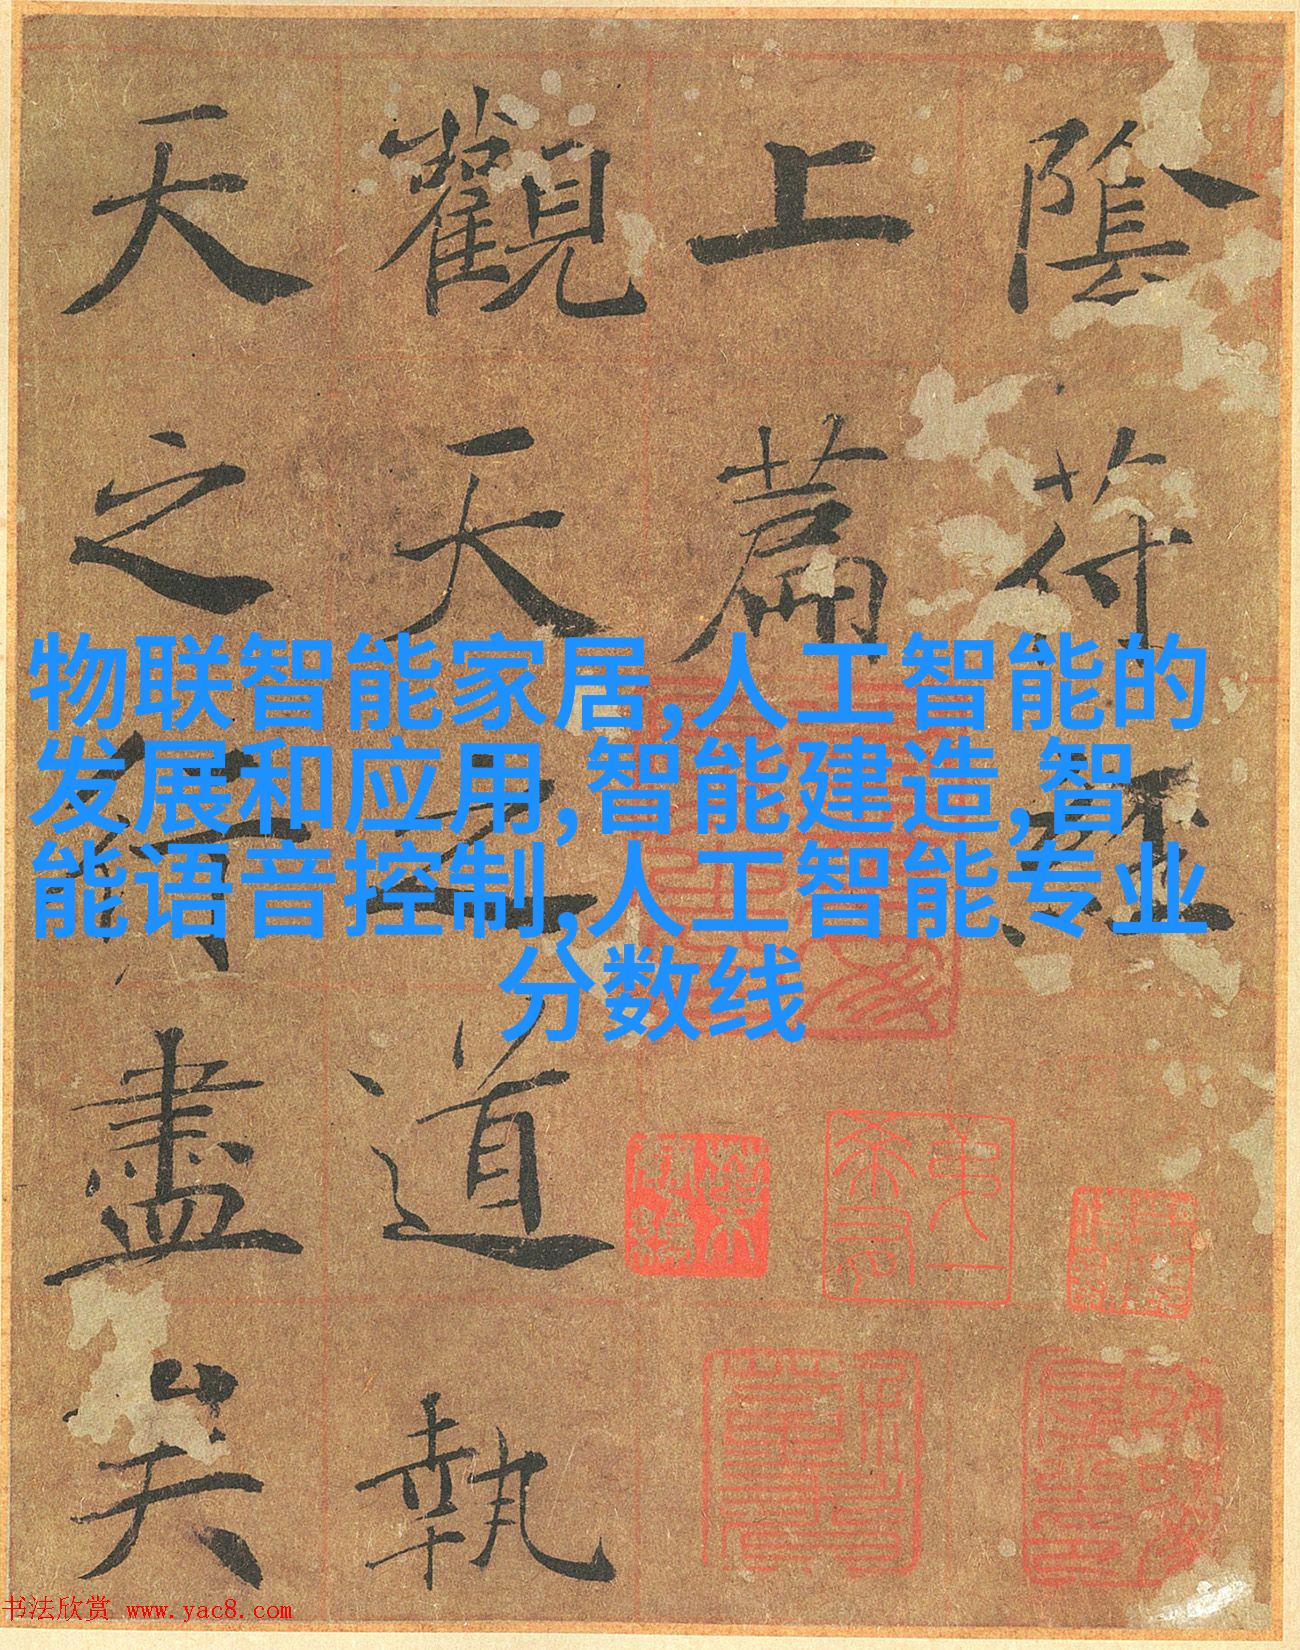 陰符經
上篇
觀天之道執
天之行盡矣
物联智能家居,人工智能的
发展和应用,智能建造,智
能语音控制,人工智能专业
分数线
书法欣赏 www.yac8.com